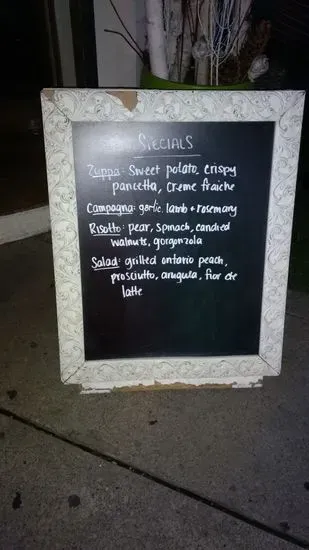 SPECIALS
Zuppa: Sweet potato, crispy
pancetta, Creme fraiche
Campagna: garlic, lamb + rosemary
Risotto: pear, spinach, candied
walnuts, gorgonzola
Salad: grilled ontario peach,
prosciutto, arugula, fior de
latte